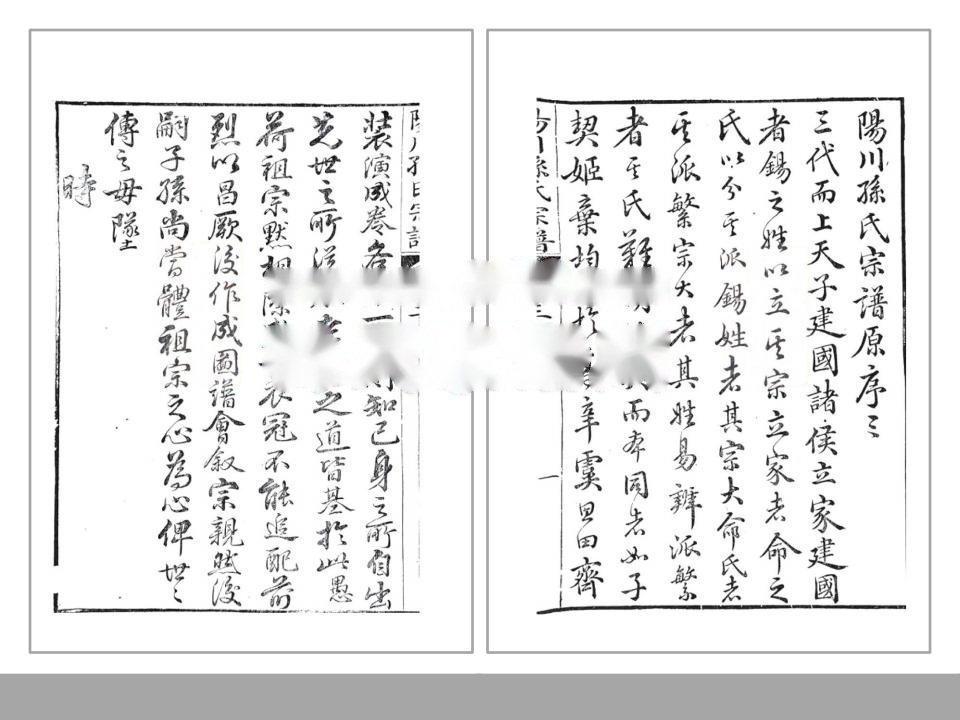 陽川孫氏宗譜原序三
三代而上天子建國諸侯立家建國
者錫之姓以立其宗立家者命之
氏以分其派錫姓者其宗大命氏者
其派繁宗大者其姓易辨派繁
者其氏難而本同者如子
契姬棄均辛虞思田齊
川孫氏宗譜
一
裝潢成卷各一知己身之所自出
先世之所之道皆基於此愚
荷祖宗默相衣冠不能追配前
烈以昌厥後作成圖譜會叙宗親然後
嗣子孫尚當體祖宗之心為心俾世〻
傳之毋墜
時